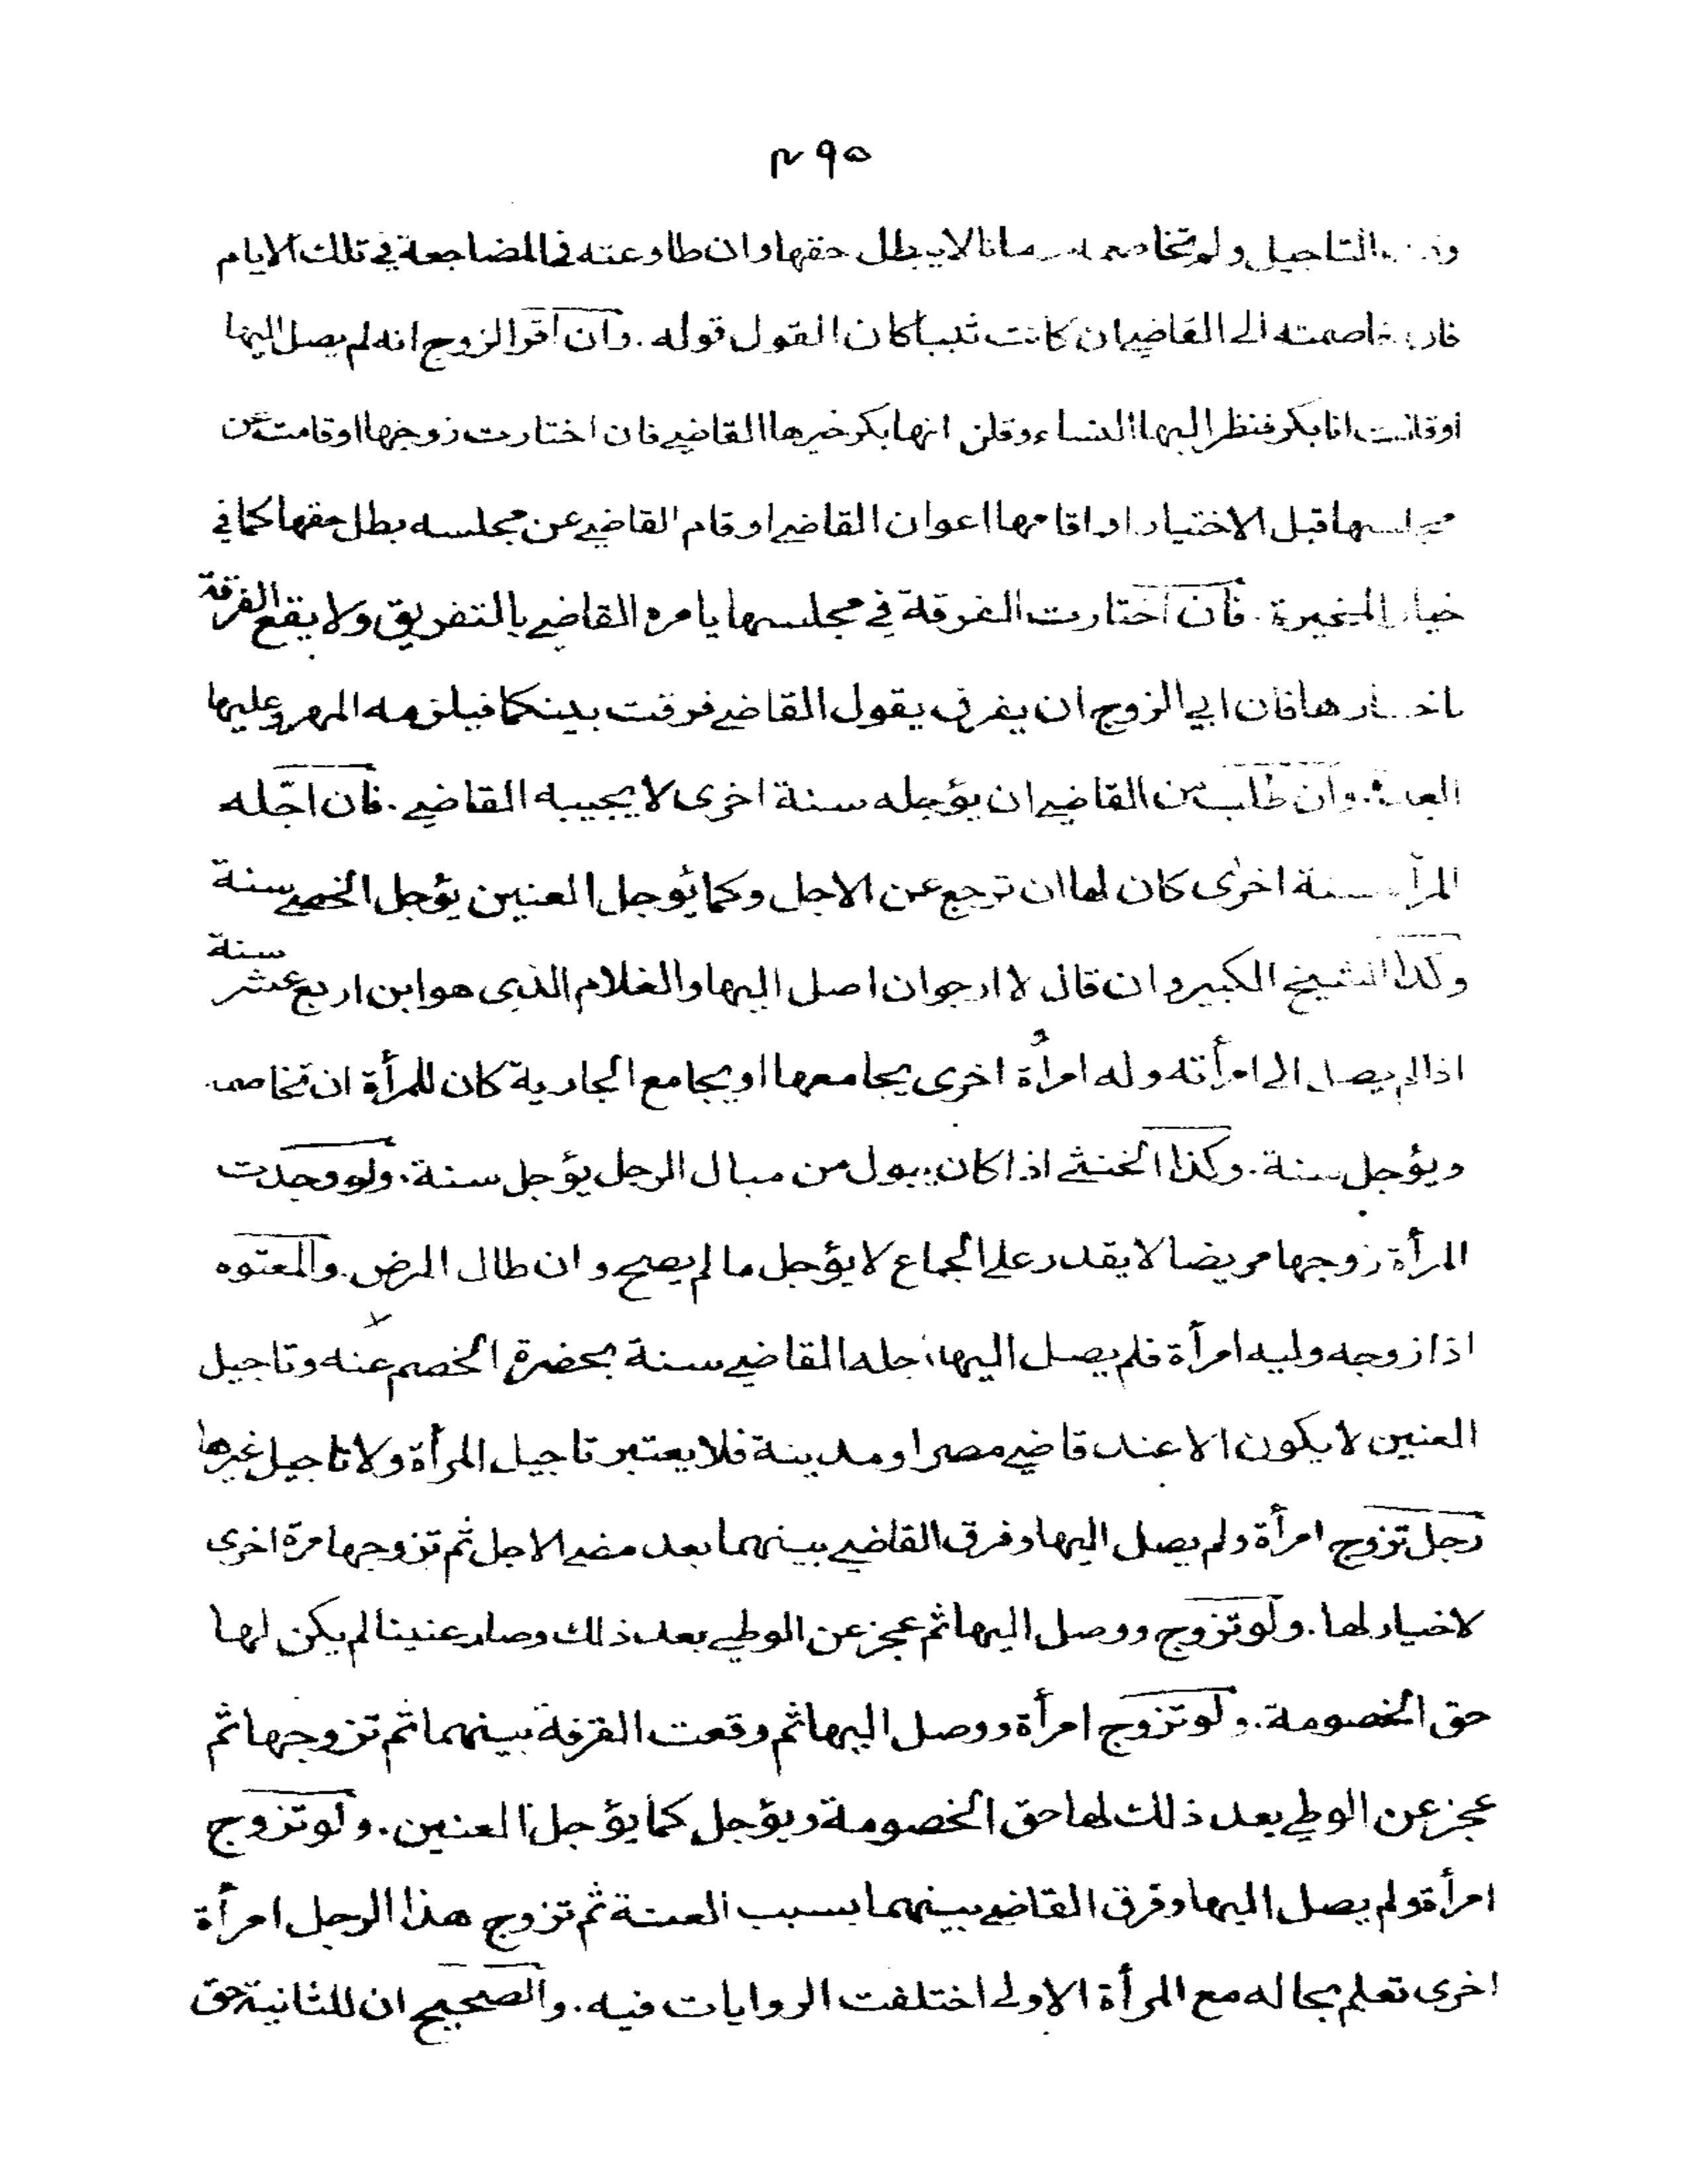 ٢٩٥
التاجيل ولم تخاصمه زمانا لا يبطل حقها وان طاوعته في المضاجعة في تلك الايام
خاصمته الى القاضي ان كانت ثيبا كان القول قوله . وان اقر الزوج انه لم يصل اليها
او قالت انا بكر فنظر اليها النساء وقلن انها بكر خيرها القاضي فان اختارت زوجها او قامت عن
مجلسها قبل الاختيار او اقامها اعوان القاضي او قام القاضي عن مجلسه بطل حقها كما في
خيار المخيرة . فان اختارت الفرقة في مجلسها يامره القاضي بالتفريق ولا يقع الفرقة
باختيارها فان ابي الزوج ان يفرق يقول القاضي فرقت بينكما فيلزمه المهر وعليها
العدة . وان طلب من القاضي ان يؤجله سنة اخرى لا يجيبه القاضي . فان اجّله
المرأة سنة اخرى كان لها ان ترجع عن الاجل وكما يؤجل العنين يؤجل الخصي سنة
وكذا الشيخ الكبير وان قال لا ارجو ان اصل اليها والغلام الذي هو ابن اربع عشر سنة
اذا لم يصل الى امرأته وله امرأة اخرى يجامعها او يجامع الجارية كان للمرأة ان تخاصمه
ويؤجل سنة . وكذا الخنثى اذا كان يبول من مبال الرجل يؤجل سنة . ولو وجدت
المرأة زوجها مريضا لا يقدر على الجماع لا يؤجل ما لم يصح وان طال المرض . والمعتوه
اذا زوجه وليه امرأة فلم يصل اليها اجله القاضي سنة بحضرة الخصم عنه وتاجيل
العنين لا يكون الا عند قاضي مصر او مدينة فلا يعتبر تاجيل المرأة ولا تاجيل غيرها
رجل تزوج امرأة ولم يصل اليها وفرق القاضي بينهما بعد مضي الاجل ثم تزوجها مرة اخرى
لا خيار لها . ولو تزوج ووصل اليها ثم عجز عن الوطي بعد ذلك وصار عنينا لم يكن لها
حق الخصومة . ولو تزوج امرأة ووصل اليها ثم وقعت الفرقة بينهما ثم تزوجها ثم
عجز عن الوطي بعد ذلك لها حق الخصومة ويؤجل كما يؤجل العنين . ولو تزوج
امرأة ولم يصل اليها وفرق القاضي بينهما بسبب العنة ثم تزوج هذا الرجل امرأة
اخرى تعلم بحاله مع المرأة الاولى اختلفت الروايات فيه . والصحيح ان للثانية حق